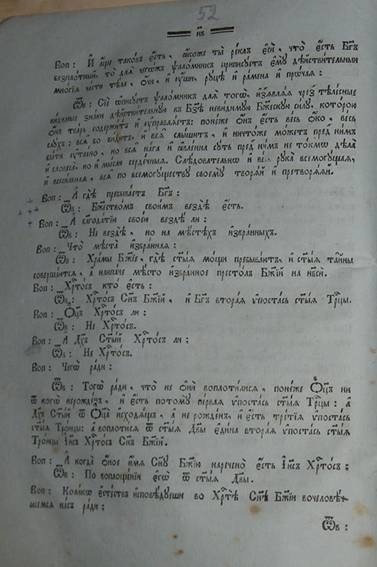 52
н҃в
Воп: И аще таковъ есть, якоже ты реклъ еси, что есть Бг҃ъ
безплотный: то два ... ѱаломникъ приписуетъ ему дѣйствителныя
многія ... тѣла, очи, и ушы руцѣ и рамена и прочая:
Ѿв: Сія пишетъ ѱаломникъ для того, изъявляя чрез тѣлесныя
... знаки дѣйствителную въ Бз҃ѣ невидимую Бж҃ескую силу, которою
онъ тварь содержитъ и управляетъ: понеже онъ есть весь око, весь
слухъ: вся бо видитъ, и вся слышитъ, и ничтоже можетъ пред нимъ
быть утаено, но вся нага и явленна суть пред нимъ не токмо дѣла
и словеса, но и мысли сердечныя. Слѣдователно и весь рука всемогущая,
и всесилная, вся по всемогуществу своему творяй и претворяяй.
Воп: А гдѣ пребываетъ Бг҃ъ:
Ѿв: Бж҃ествомъ своимъ вездѣ есть.
Воп: А благодатію своею вездѣ ли:
Ѿв: Не вездѣ, но на мѣстѣхъ избранныхъ.
Воп: Что мѣста избранная:
Ѿв: Храмы Бж҃іе, гдѣ ст҃ыя мощи пребываютъ, и ст҃ыя тайны
совершаются, а наипаче мѣсто избранное престолъ Бж҃ій на нб҃си.
Воп: Хрⷭ҇тосъ кто есть:
Ѿв: Хрⷭ҇тосъ Сн҃ъ Бж҃ій, и Бг҃ъ вторая ѵпостась ст҃ыя Трⷪ҇цы.
Воп: Оц҃ъ Хрⷭ҇тосъ ли:
Ѿв: Не Хрⷭ҇тосъ.
Воп: А Дх҃ъ Ст҃ый Хрⷭ҇тосъ ли:
Ѿв: Не Хрⷭ҇тосъ.
Воп: Чего ради:
Ѿв: Того ради, что не они воплотишася, понеже Оц҃ъ ни
ѿ кого нерожденъ, и есть потому первая ѵпостась ст҃ыя Трⷪ҇цы: а
Дх҃ъ Ст҃ый ѿ Оц҃а исходящъ, а не рожденъ, и есть третія ѵпостась
ст҃ыя Трⷪ҇цы: а воплотися ѿ ст҃ыя Дв҃ы едина вторая ѵпостась ст҃ыя
Троицы Іи҃съ Хрⷭ҇тосъ Сн҃ъ Бж҃ій.
Воп: А когда оное имя Сн҃у Бж҃ію наречено есть Іи҃съ Хрⷭ҇тосъ:
Ѿв: По воплощеніи его ѿ ст҃ыя Дв҃ы.
Воп: Колико естествъ исповѣдуеши во Хрⷭ҇тѣ Сн҃ѣ Бж҃іи вочеловѣч-
шемся насъ ради:
Ѿв: